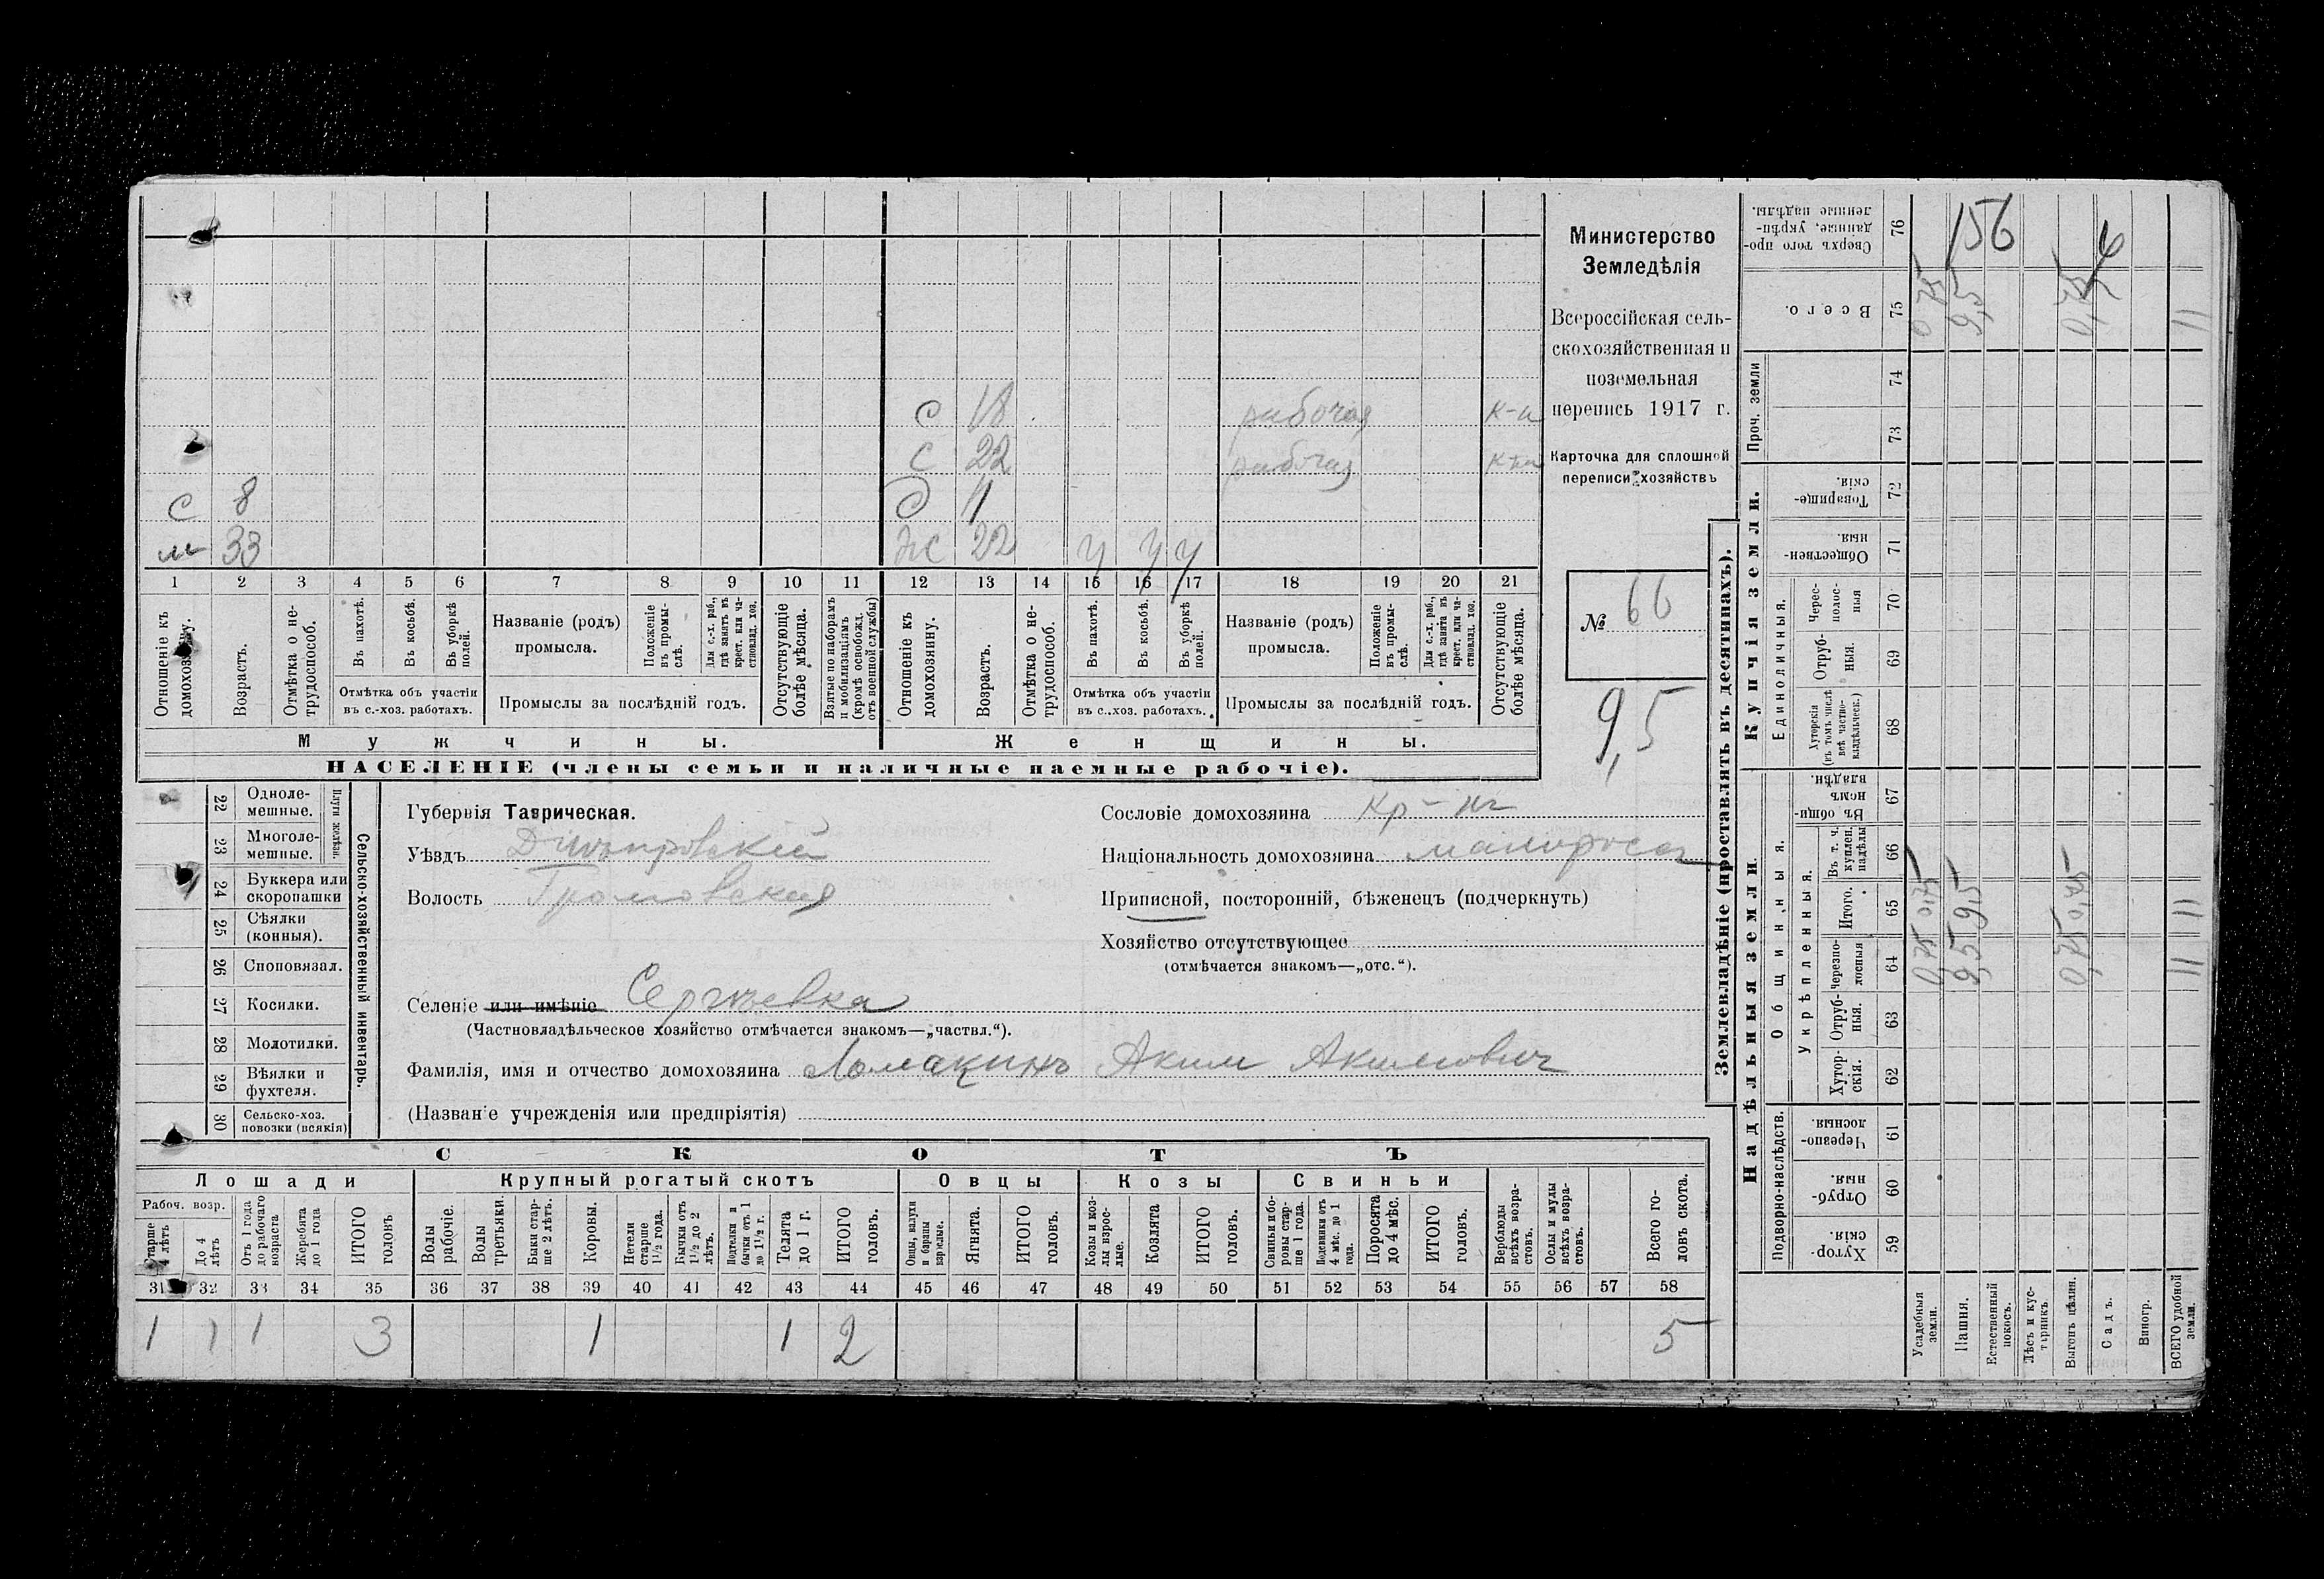 С 18 рабочая к-и
С 22 рабочая
С 8 С 11
м 33 ж 22 у у у
1 2 3 4 5 6 7 8 9 10 11 12 13 14 15 16 17 18 19 20 21
Отношеніе къ домохозяину.
Возрастъ.
Отмѣтка о не-трудоспособ.
Въ пахотѣ.
Въ косьбѣ.
Въ уборкѣ полей.
Отмѣтка объ участіи
въ с.-хоз. работахъ.
Названіе (родъ)
промысла.
Положеніе въ промы-слѣ.
Для с.-х. раб., гдѣ занятъ въ крест. или ча-ствовлад. хоз.
Промыслы за послѣдній годъ.
Отсутствующіе болѣе мѣсяца.
Взятые по наборамъ и мобилизаціямъ (кромѣ освобожд. отъ военной службы)
Отношеніе къ домохозяину.
Возрастъ.
Отмѣтка о не-трудоспособ.
Въ пахотѣ.
Въ косьбѣ.
Въ уборкѣ полей.
Отмѣтка объ участіи
въ с.-хоз. работахъ.
Названіе (родъ)
промысла.
Положеніе въ промы-слѣ.
Для с.-х. раб., гдѣ занята въ крест. или ча-ствовлад. хоз.
Промыслы за послѣдній годъ.
Отсутствующіе болѣе мѣсяца.
Мужчины. Женщины.
НАСЕЛЕНІЕ (члены семьи и наличные наемные рабочіе).
Министерство
Земледѣлія
Всероссійская сель-
скохозяйственная и
поземельная
перепись 1917 г.
Карточка для сплошной
переписи хозяйствъ
№ 66
9,5
22 Одноле-мешные.
23 Многоле-мешные.
Плуги желѣзн.
24 Буккера или скоропашки 1
25 Сѣялки (конныя).
26 Сноповязал.
27 Косилки.
28 Молотилки.
29 Вѣялки и фухтеля.
30 Сельско-хоз. повозки (всякія)
Сельско-хозяйственный инвентарь.
Губернія Таврическая.
Уѣздъ Днѣпровскій
Волость Громовская
Селеніе или имѣніе Сергѣевка
(Частновладѣльческое хозяйство отмѣчается знакомъ—„частвл.“).
Фамилія, имя и отчество домохозяина Ломакинъ Аким Акимович
(Названіе учрежденія или предпріятія)
Сословіе домохозяина кр-нг
Національность домохозяина малоросс
Приписной, посторонній, бѣженецъ (подчеркнуть)
Хозяйство отсутствующее
(отмѣчается знакомъ—„отс.“).
СКОТЪ
Лошади Крупный рогатый скотъ Овцы Козы Свиньи
Рабоч. возр.
Старше 4 лѣтъ
До 4 лѣтъ
Отъ 1 года до рабочаго возраста
Жеребята до 1 года
ИТОГО головъ
Волы рабочіе.
Волы третьяки.
Быки стар-ше 2 лѣтъ.
Коровы.
Нетели старше 1½ года.
Бычки отъ 1½ до 2 лѣтъ.
Подтелки и бычки отъ 1 до 1½ г.
Телята до 1 г.
ИТОГО головъ.
Овцы, валухи и бараны взрослые.
Ягнята.
ИТОГО головъ.
Козы и коз-лы взрос-лые.
Козлята
ИТОГО головъ.
Свиньи и бо-ровы стар-ше 1 года.
Подсвинки отъ 4 мѣс. до 1 года.
Поросята до 4 мѣс.
ИТОГО головъ.
Верблюды всѣхъ возра-стовъ.
Ослы и мулы всѣхъ возра-стовъ.
Всего го-ловъ скота.
31 32 33 34 35 36 37 38 39 40 41 42 43 44 45 46 47 48 49 50 51 52 53 54 55 56 57 58
1 1 1 3 1 1 2 5
Землевладѣніе (проставлять въ десятинахъ).
Надѣльныя земли.
Купчія земли.
Подворно-наслѣдств.
Общинныя.
Укрѣпленныя.
Единоличныя.
Проч. земли
Хутор-скія. 59
Отруб-ныя. 60
Черезпо-лосныя. 61
Хутор-скія. 62
Отруб-ныя. 63
Черезпо-лосныя 64
Итого. 65
Въ т. ч. куплен. надѣлы 66
Въ общи-номъ владѣн. 67
Хуторскія (въ томъ числѣ всѣ частно-владѣльческ.) 68
Отруб-ныя. 69
Черес-полос-ныя 70
Обществен-ныя. 71
Товарище-скія. 72
73
74
Всего. 75
Сверхъ того про-данные, укрѣп-ленные надѣлы. 76
Усадебныя земли. 0,75 0,75 0,75
Пашня. 9,5 9,5 9,5
Естественный покосъ.
Лѣсъ и кус-тарникъ.
Выгонъ цѣлин. 0,75 0,75 0,75
Садъ.
Виногр.
ВСЕГО удобной земли. 11 11 11
156